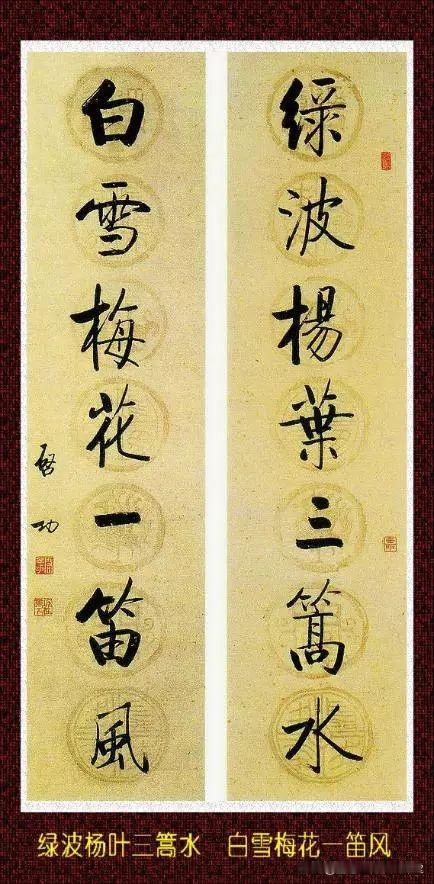 綠波楊葉三篙水
白雪梅花一笛風
啓功
绿波杨叶三篙水 白雪梅花一笛风